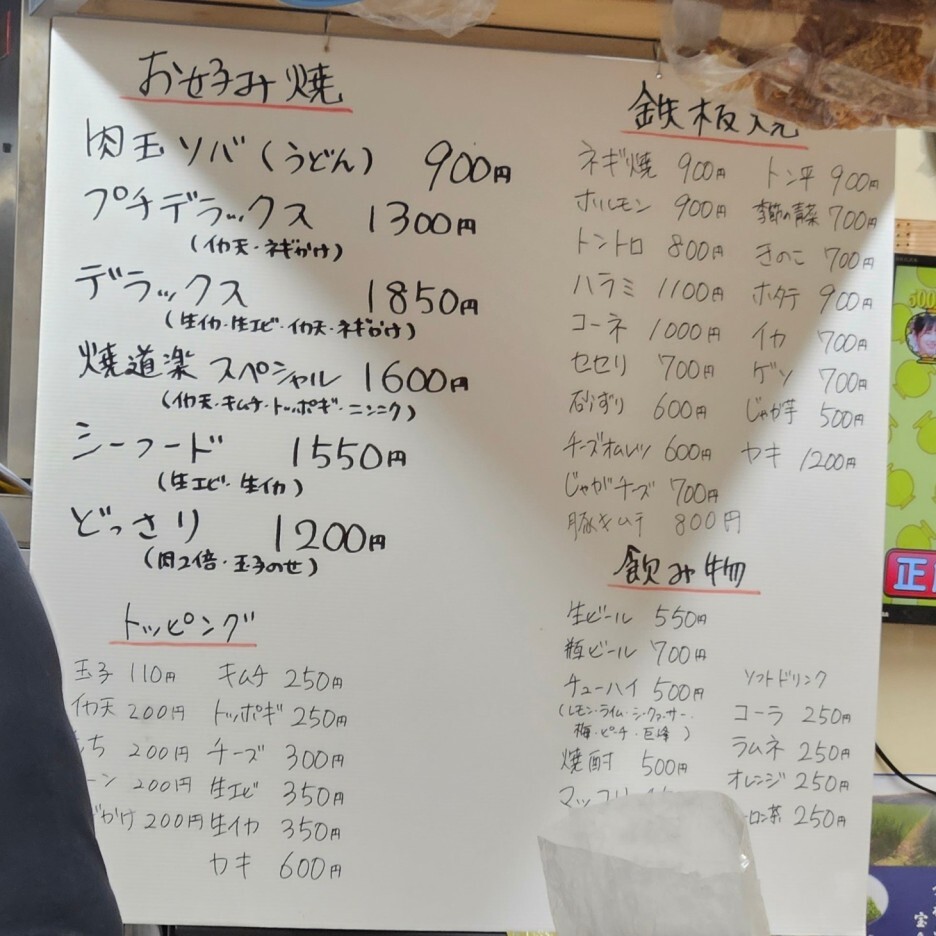 お好み焼
肉玉ソバ(うどん) 900円
プチデラックス 1300円
(イカ天・ネギかけ)
デラックス 1850円
(生イカ・生エビ・イカ天・ネギかけ)
焼道楽スペシャル 1600円
(イカ天・キムチ・トッポギ・ニンニク)
シーフード 1550円
(生エビ・生イカ)
どっさり 1200円
(肉2倍・玉子のせ)
トッピング
玉子 110円
イカ天 200円
ち 200円
ーン 200円
かけ 200円
キムチ 250円
トッポギ 250円
チーズ 300円
生エビ 350円
生イカ 350円
カキ 600円
鉄板
ネギ焼 900円
ホルモン 900円
トントロ 800円
ハラミ 1100円
コーネ 1000円
セセリ 700円
砂ずり 600円
チーズオムレツ 600円
じゃがチーズ 700円
豚キムチ 800円
トン平 900円
季節の青菜 700円
きのこ 700円
ホタテ 900円
イカ 700円
ゲソ 700円
じゃが芋 500円
カキ 1200円
飲み物
生ビール 550円
瓶ビール 700円
チューハイ 500円
(レモン・ライム・シークァーサー・
梅・ピーチ・巨峰)
焼酎 500円
マッコリ
ソフトドリンク
コーラ 250円
ラムネ 250円
オレンジ 250円
ーロン茶 250円
正